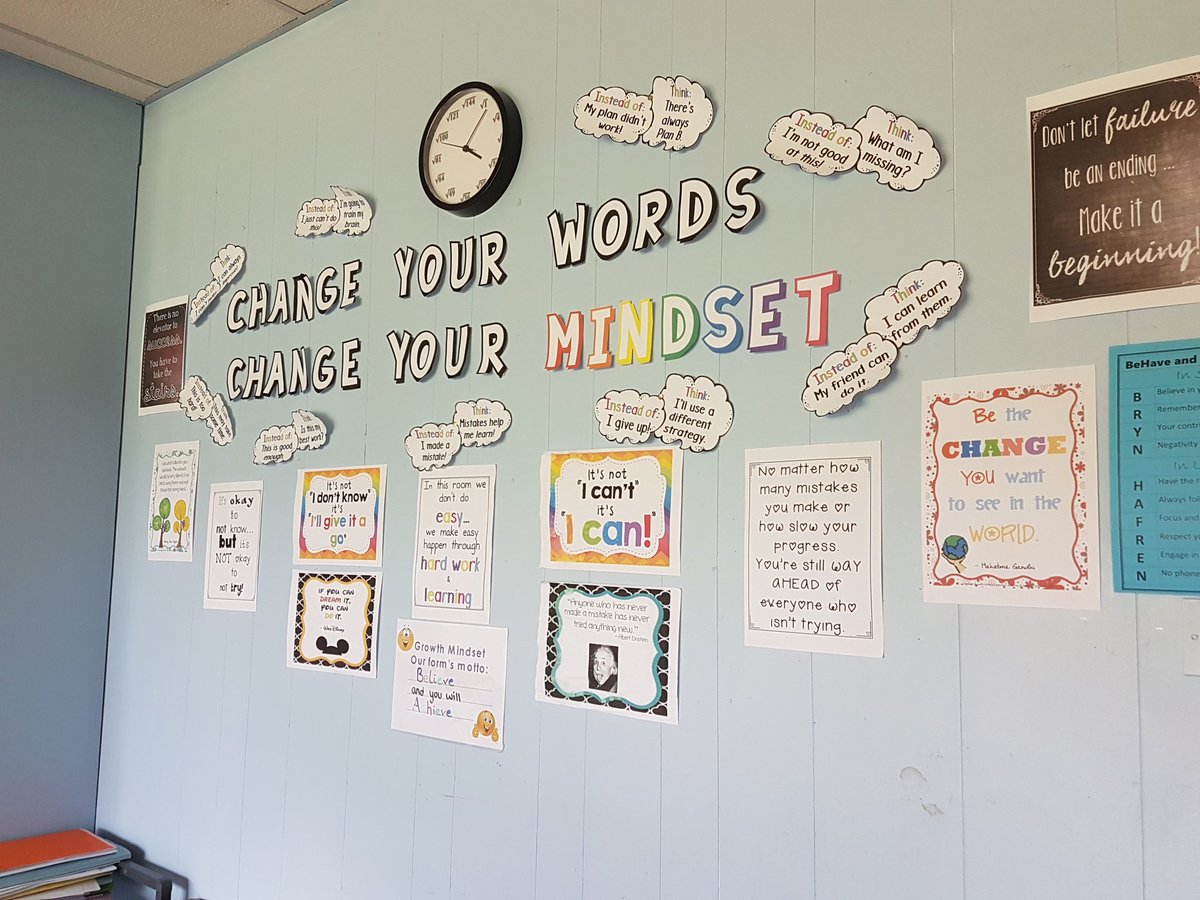 √1
√121
√144
√81
√64
√49
√36
√16
Instead of:
My plan didn't
work!
Think:
There's
always
Plan B.
Instead of:
I'm not good
at this!
Think:
What am I
missing?
Don't let failure
be an ending ...
Make it a
beginning!
Instead of:
I just can't do
this!
Think:
I'm going to
train my
brain.
Instead of:
Think:
CHANGE YOUR WORDS
CHANGE YOUR MINDSET
There is no
elevator to
success.
You have to
take the
stairs.
Think:
I can learn
from them.
Instead of:
My friend can
do it.
Instead of:
This is good
enough.
Is this my
best work?
Instead of:
I made a
mistake!
Think:
Mistakes help
me learn!
Instead of:
I give up!
Think:
I'll use a
different
strategy.
It's okay
to
not know...
but it's
NOT okay
to
not try!
It's not
"I don't know"
it's
"I'll give it a
go"
IF YOU CAN
DREAM IT,
YOU CAN
DO IT.
- Walt Disney
In this room we
don't do
easy...
we make easy
happen through
hard work
&
learning
Growth Mindset
Our form's motto:
Believe
and you will
A hieve
It's not
"I can't"
it's
"I can!"
"Anyone who has never
made a mistake has never
tried anything new."
- Albert Einstein
No matter how
many mistakes
you make or
how slow your
progress.
You're still WAY
AHEAD of
everyone who
isn't trying.
Be the
CHANGE
YOU want
to see in the
WORLD.
- Mahatma Gandhi
BeHave and
In
B
R
Y
N
H
A
F
R
E
N
Believe in y
Remember
Your contr
Negativity
In
Have the r
Always follo
Focus and
Respect yo
Engage in
No phone